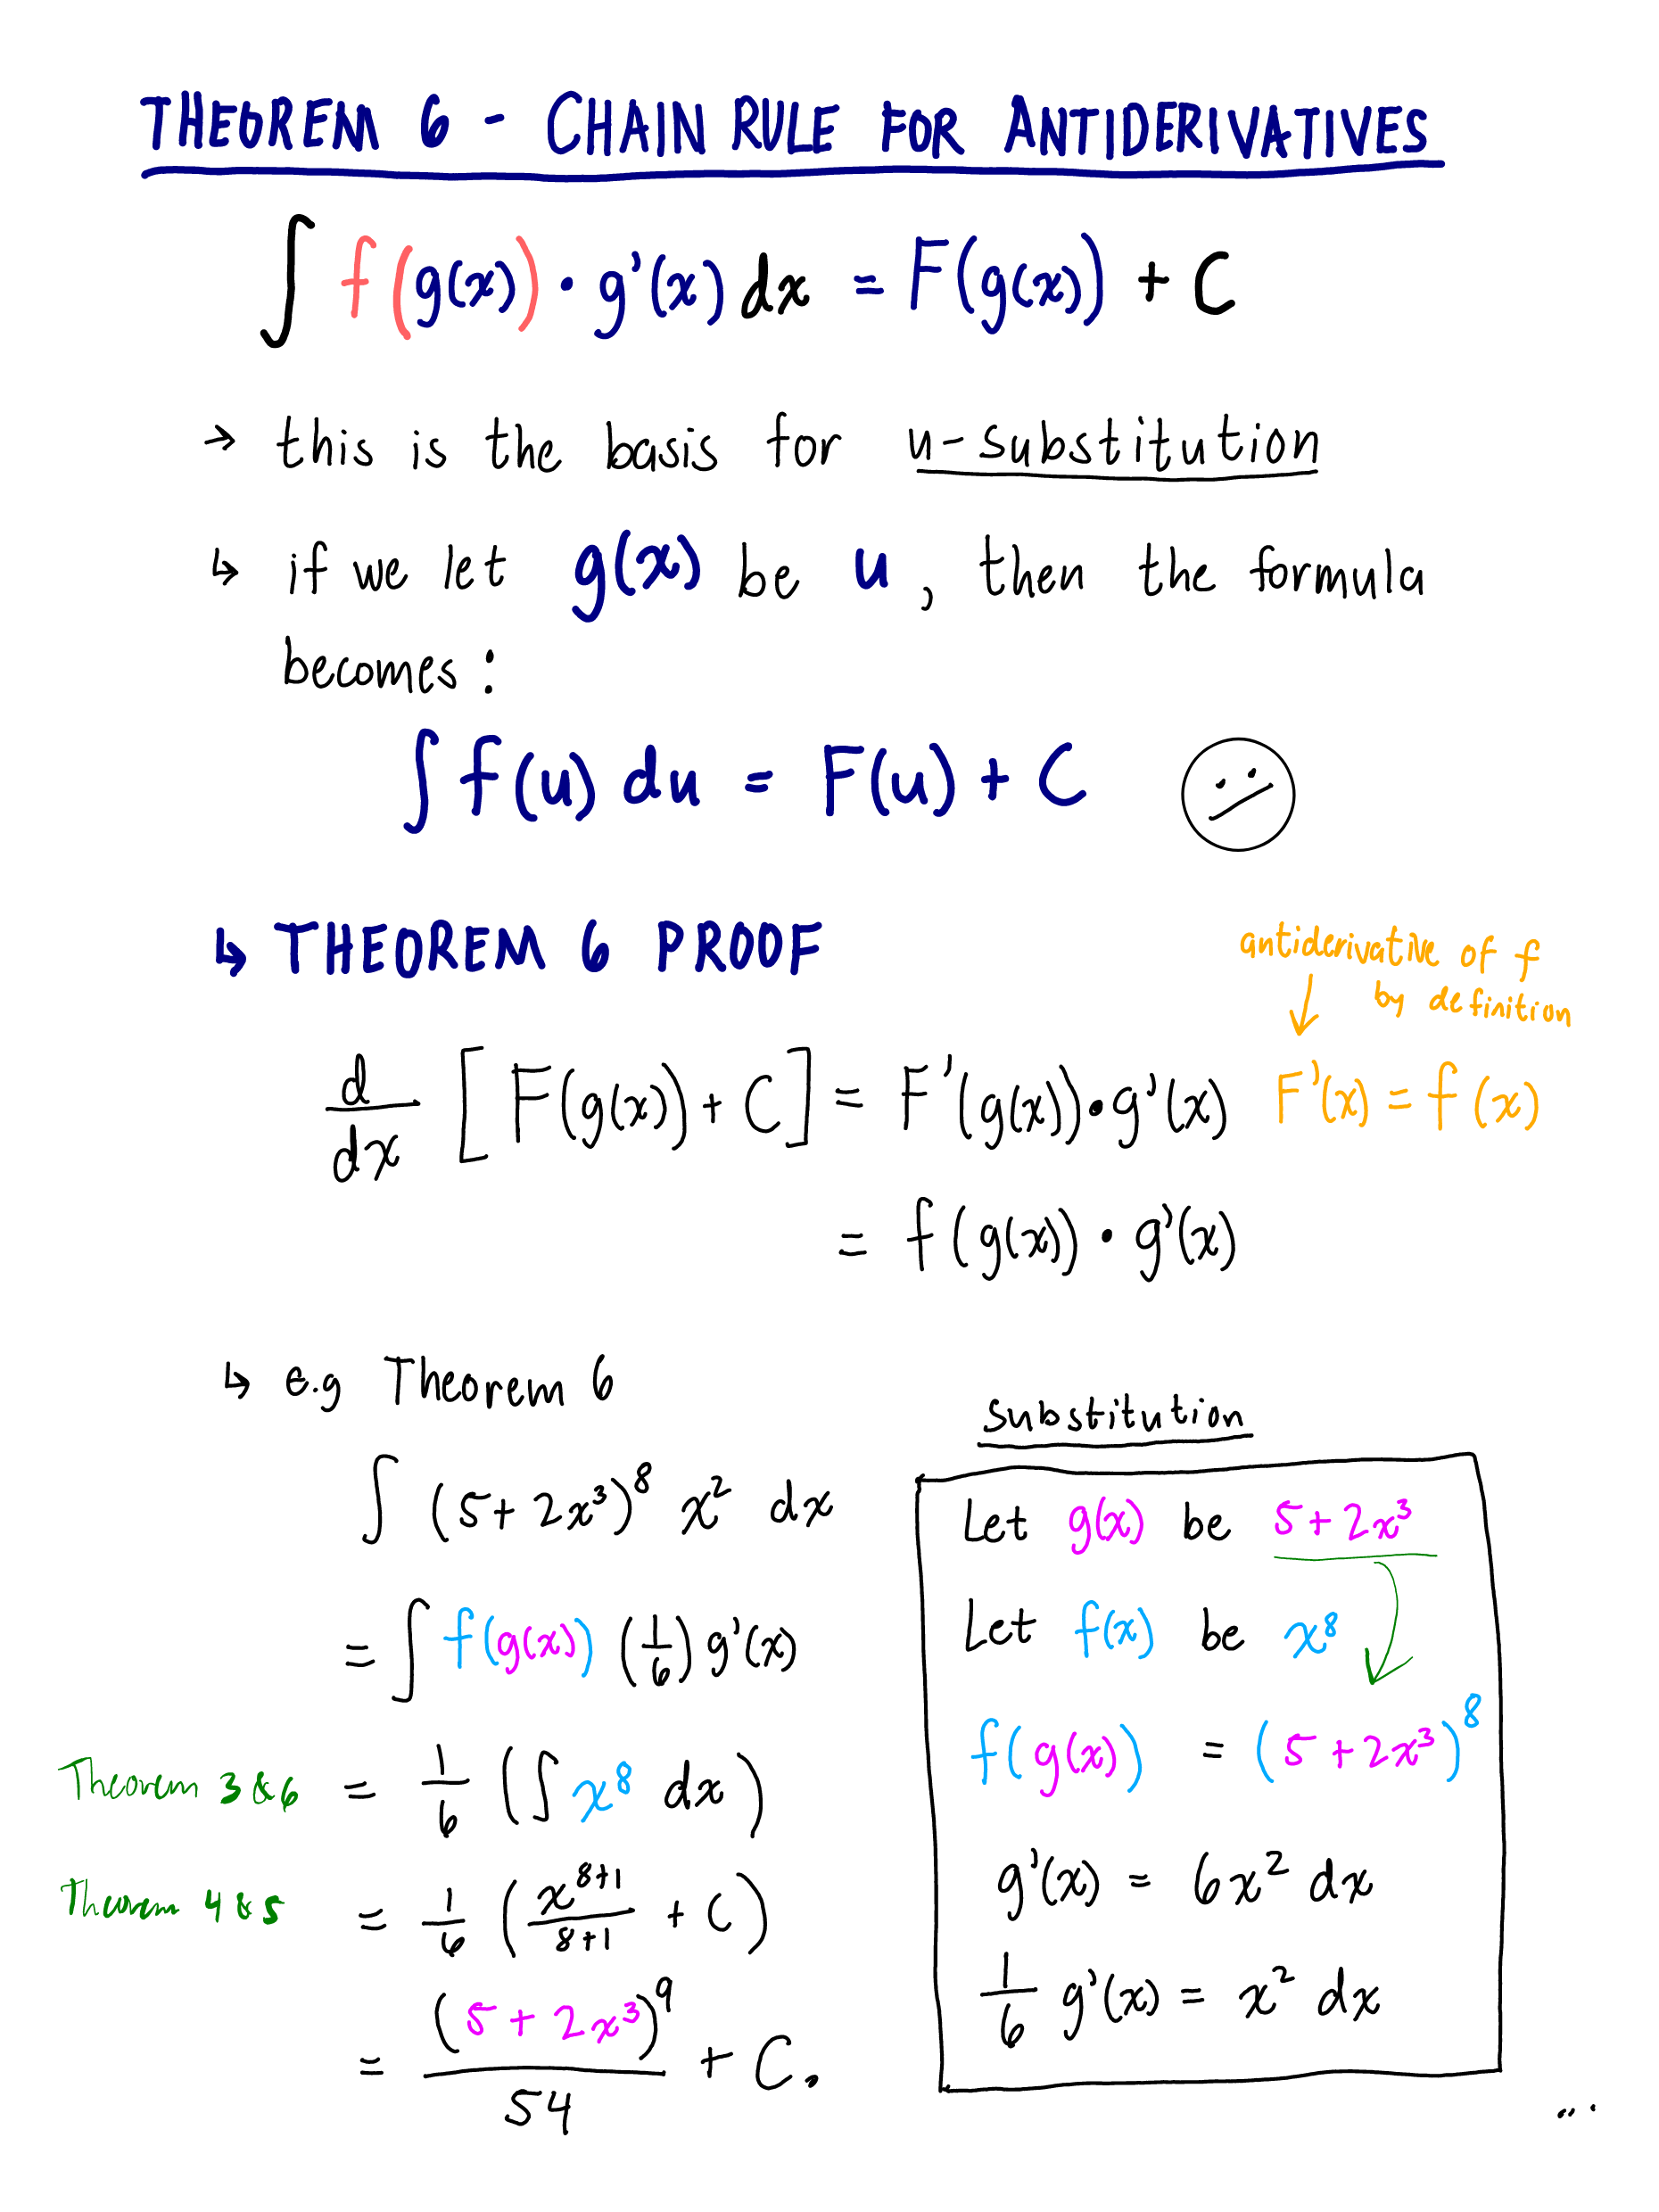 THEOREM 6 - CHAIN RULE FOR ANTIDERIVATIVES
∫ f(g(x)) · g'(x) dx = F(g(x)) + C
→ this is the basis for u-substitution
↳ if we let g(x) be u, then the formula
becomes:
∫ f(u) du = F(u) + C
↳ THEOREM 6 PROOF
antiderivative of f
by definition
d/dx [F(g(x)) + C] = F'(g(x)) · g'(x) F'(x) = f(x)
= f(g(x)) · g'(x)
↳ e.g Theorem 6
∫ (5 + 2x³)⁸ x² dx
= ∫ f(g(x)) (1/6) g'(x)
Theorem 3 & 6 = 1/6 (∫ x⁸ dx)
Theorem 4 & 5 = 1/6 (x⁸⁺¹/8+1 + C)
= (5 + 2x³)⁹/54 + C.
Substitution
Let g(x) be 5 + 2x³
Let f(x) be x⁸
f(g(x)) = (5 + 2x³)⁸
g'(x) = 6x² dx
1/6 g'(x) = x² dx
...